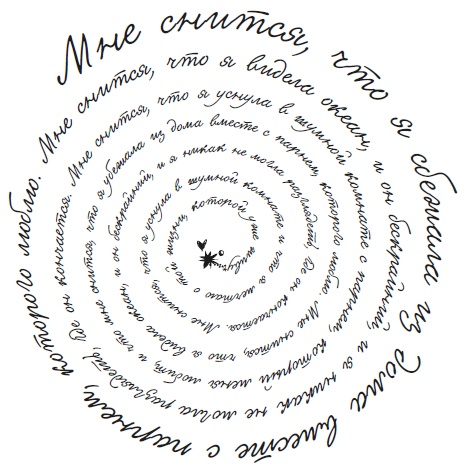 Мне снится, что я сбежала из дома вместе с парнем, которого люблю. Мне снится, что я видела океан, и он бескрайний, и я никак не могла разглядеть, где он кончается. Мне снится, что я уснула в шумной комнате с парнем, который меня любит и что мне снится, что я убежала из дома вместе с парнем, которого люблю. Мне снится, что я видела океан, и он бескрайний, и я никак не могла разглядеть, где он кончается. Мне снится, что я уснула в шумной комнате и что я мечтаю о той жизни, которой уже живу